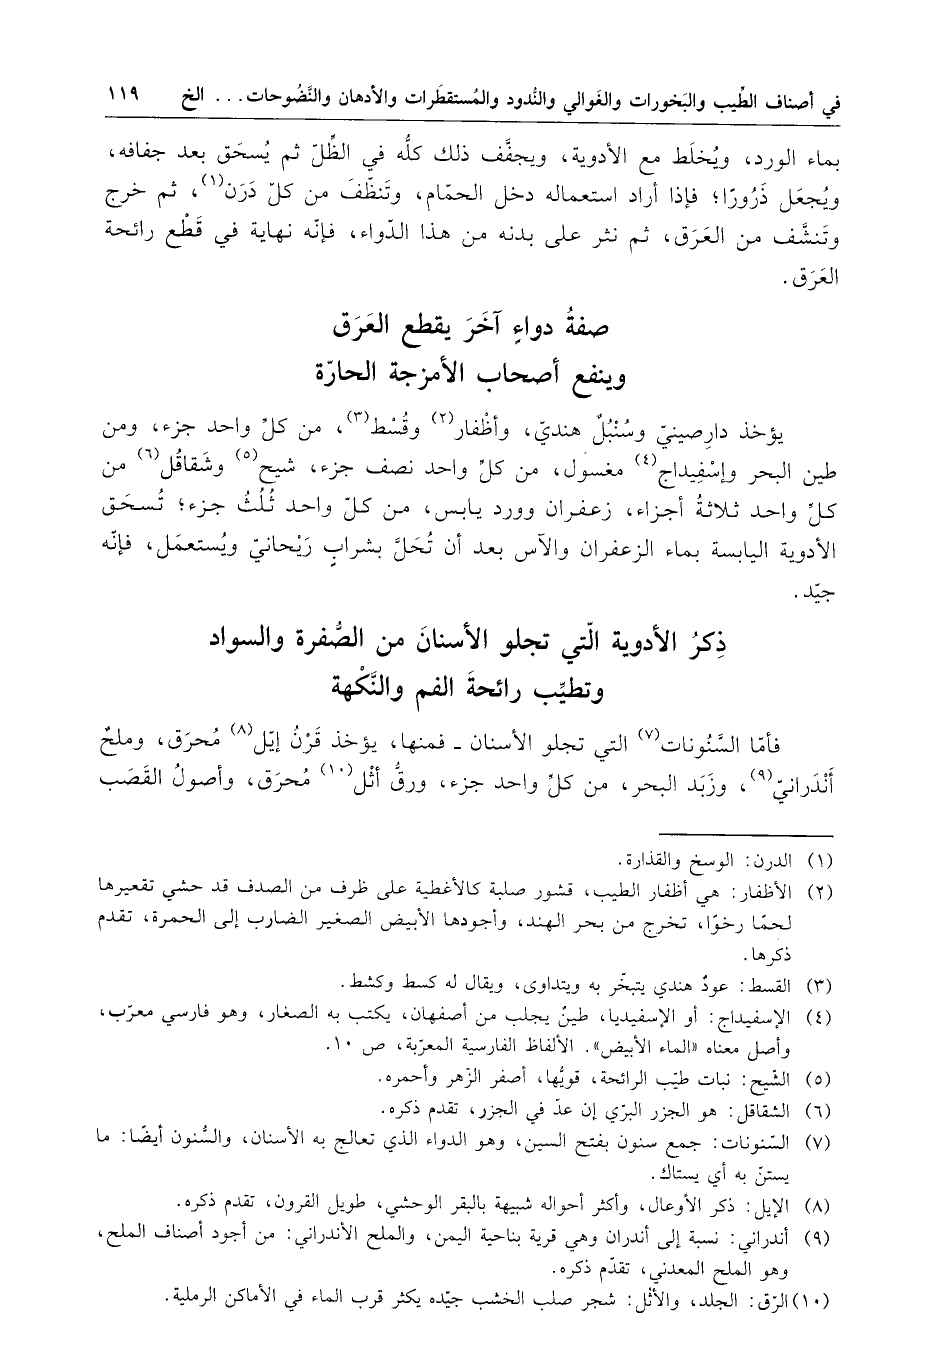 في أصناف الطِّيب والبَخورات والغَوالي والنُّدود والمُستقطَرات والأدهان والنَّضُوحات... الخ ١١٩
بماء الورد، ويُخلَط مع الأدوية، ويجفَّف ذلك كلُّه في الظِّلّ ثم يُسحَق بعد جفافه،
ويُجعَل ذَرُورًا؛ فإذا أراد استعماله دخل الحمّام، وتَنظّفَ من كلّ دَرَن(١)، ثم خرج
وتَنشَّف من العَرَق، ثم نثر على بدنه من هذا الدّواء، فإنّه نهاية في قَطْع رائحة
العَرَق.
صفةُ دواءٍ آخَرَ يقطع العَرَق
وينفع أصحاب الأمزجة الحارّة
يؤخذ دارِصينيّ وسُنْبُلٌ هنديّ، وأظْفار(٢) وقُسْط(٣)، من كلِّ واحد جزء، ومن
طين البحر وإسْفِيداج(٤) مغسول، من كلِّ واحد نصف جزء، شيح(٥) وشَقاقُل(٦) من
كلِّ واحد ثلاثةُ أجزاء، زعفران وورد يابس، من كلّ واحد ثُلُثُ جزء؛ تُسحَق
الأدوية اليابسة بماء الزعفران والآس بعد أن تُحَلَّ بشرابٍ رَيْحانيّ ويُستعمَل، فإنّه
جيّد.
ذِكرُ الأدوية الّتي تجلو الأسنانَ من الصُّفرة والسواد
وتطيِّب رائحةَ الفم والنَّكْهة
فأمّا السَّنُونات(٧) التي تجلو الأسنان ـ فمنها، يؤخذ قَرْنُ إيّل(٨) مُحرَق، وملحٌ
أَنْدَرانيّ(٩)، وزَبَد البحر، من كلِّ واحد جزء، ورقُّ أَثْل(١٠) مُحرَق، وأصولُ القَصَب
(١) الدرن: الوسخ والقذارة.
(٢) الأظفار: هي أظفار الطيب، قشور صلبة كالأغطية على ظرف من الصدف قد حشي تقعيرها
لحمًا رخوًا، تخرج من بحر الهند، وأجودها الأبيض الصغير الضارب إلى الحمرة، تقدم
ذكرها.
(٣) القسط: عودٌ هندي يتبخّر به ويتداوى، ويقال له كسط وكشط.
(٤) الإسفيداج: أو الإسفيديا، طينٌ يجلب من أصفهان، يكتب به الصغار، وهو فارسي معرّب،
وأصل معناه «الماء الأبيض». الألفاظ الفارسية المعرّبة، ص ١٠.
(٥) الشّيح: نبات طيّب الرائحة، قويُّها، أصفر الزّهر وأحمره.
(٦) الشقاقل: هو الجزر البرّي إن عدّ في الجزر، تقدم ذكره.
(٧) السّنونات: جمع سنون بفتح السين، وهو الدواء الذي تعالج به الأسنان، والسُّنون أيضًا: ما
يستنّ به أي يستاك.
(٨) الإيل: ذكر الأوعال، وأكثر أحواله شبيهة بالبقر الوحشي، طويل القرون، تقدم ذكره.
(٩) أندراني: نسبة إلى أندران وهي قرية بناحية اليمن، والملح الأندراني: من أجود أصناف الملح،
وهو الملح المعدني، تقدّم ذكره.
(١٠) الرّق: الجلد، والأثْل: شجر صلب الخشب جيّده يكثر قرب الماء في الأماكن الرملية.